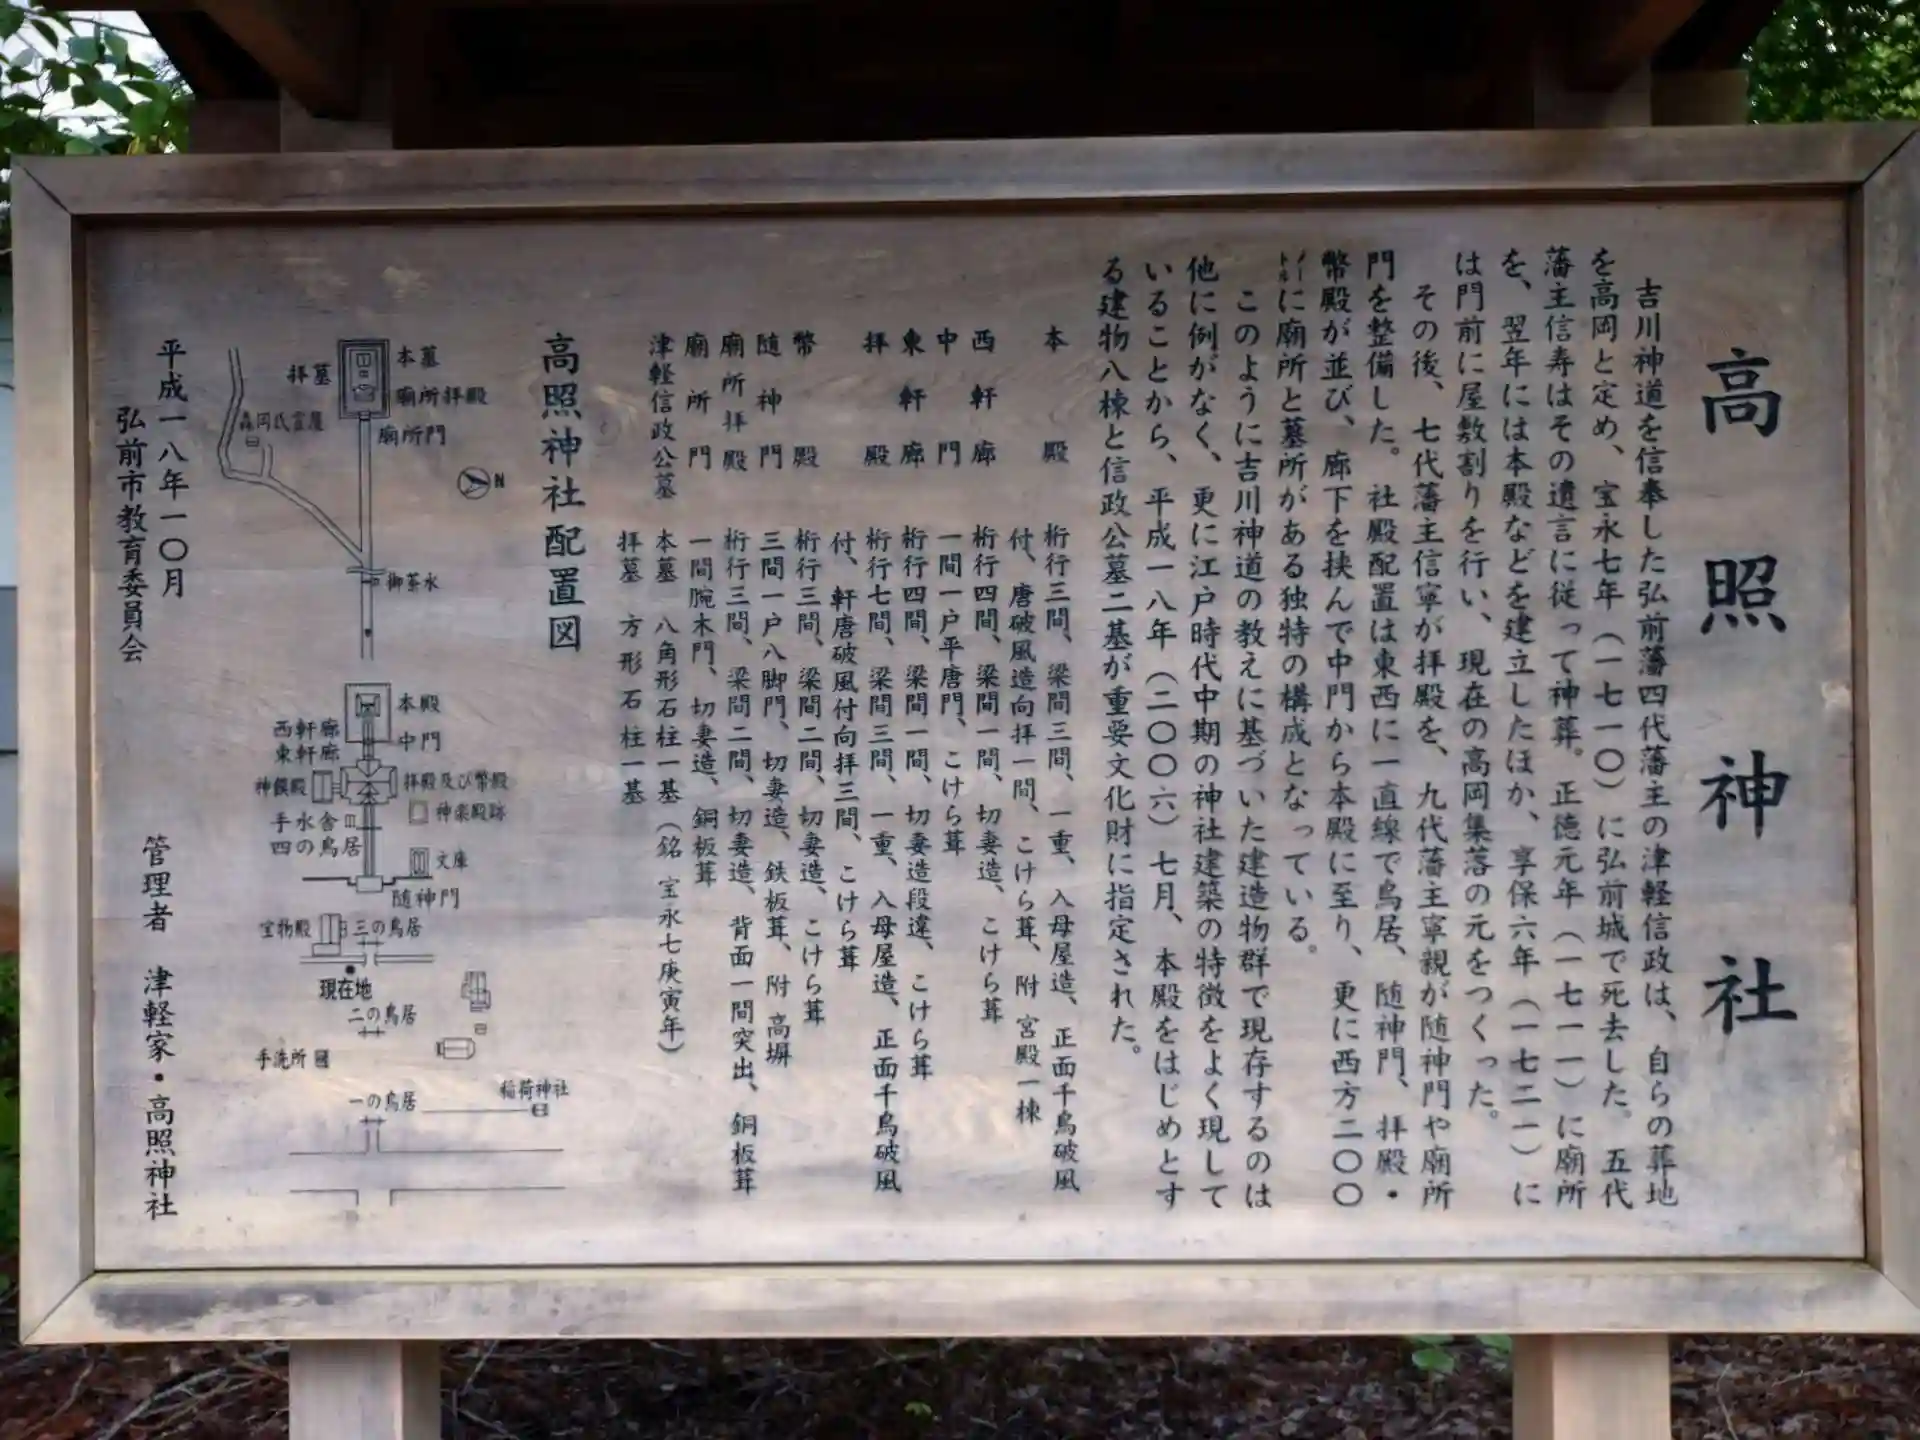 高照神社
吉川神道を信奉した弘前藩四代藩主の津軽信政は、自らの葬地
を高岡と定め、宝永七年（一七一〇）に弘前城で死去した。五代
藩主信寿はその遺言に従って神葬。正徳元年（一七一一）に廟所
を、翌年には本殿などを建立したほか、享保六年（一七二一）に
は門前に屋敷割りを行い、現在の高岡集落の元をつくった。
その後、七代藩主信寧が拝殿を、九代藩主寧親が随神門や廟所
門を整備した。社殿配置は東西に一直線で鳥居、随神門、拝殿・
幣殿が並び、廊下を挟んで中門から本殿に至り、更に西方二〇〇
メートルに廟所と墓所がある独特の構成となっている。
このように吉川神道の教えに基づいた建造物群で現存するのは
他に例がなく、更に江戸時代中期の神社建築の特徴をよく現して
いることから、平成一八年（二〇〇六）七月、本殿をはじめとす
る建物八棟と信政公墓二基が重要文化財に指定された。
本殿 桁行三間、梁間三間、一重、入母屋造、正面千鳥破風
付、唐破風造向拝一間、こけら葺、附 宮殿一棟
西軒廊 桁行四間、梁間一間、切妻造、こけら葺
中門 一間一戸平唐門、こけら葺
東軒廊 桁行四間、梁間一間、切妻造段違、こけら葺
拝殿 桁行七間、梁間三間、一重、入母屋造、正面千鳥破風
付、軒唐破風付向拝三間、こけら葺
幣殿 桁行三間、梁間二間、切妻造、こけら葺
随神門 三間一戸八脚門、切妻造、鉄板葺、附 高塀
廟所拝殿 桁行三間、梁間二間、切妻造、背面一間突出、銅板葺
廟所門 一間腕木門、切妻造、銅板葺
津軽信政公墓 本墓 八角形石柱一基（銘 宝永七庚寅年）
拝墓 方形石柱一基
高照神社配置図
本墓
拝墓
廟所拝殿
廟所門
森岡氏霊屋
N
御茶水
本殿
中門
西軒廊
東軒廊
拝殿及び幣殿
神饌殿
神楽殿跡
手水舎
四の鳥居
文庫
随神門
宝物殿
三の鳥居
現在地
二の鳥居
手洗所
稲荷神社
一の鳥居
平成一八年一〇月
弘前市教育委員会
管理者 津軽家・高照神社